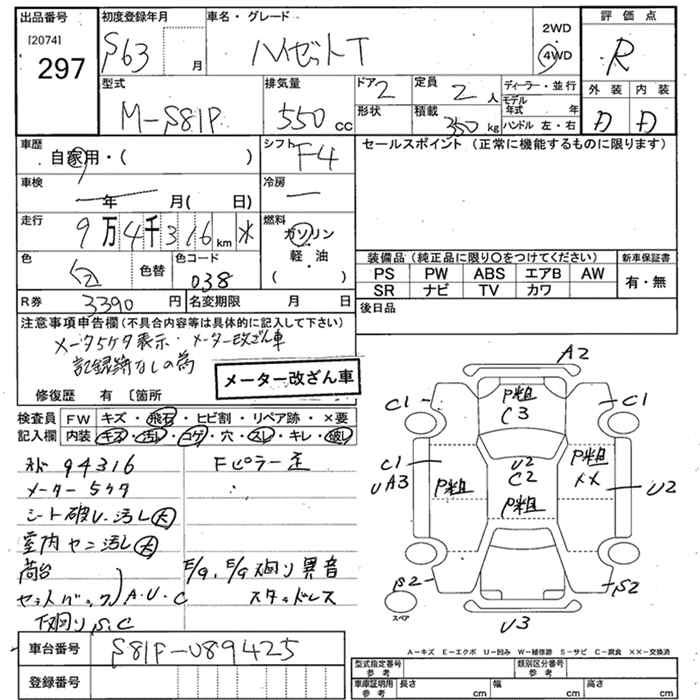 出品番号 初度登録年月 車名・グレード 2WD 評価点
[2074] 297 S63 月 ハイゼットT 4WD R
型式 排気量 ドア 2 定員 2 人 ディーラー・並行 外装 内装
M-S81P 550 cc 形状 積載 350 kg モデル年式 年 D D
ハンドル 左・右
車歴 自家用・( ) シフト F4 セールスポイント (正常に機能するものに限ります)
車検 年 月( 日) 冷房
走行 9万4千316 km 燃料 ガソリン 軽・油 ( )
色 白 色替 色コード 038
装備品 (純正品に限り○をつけてください) 新車保証書
PS PW ABS エアB AW 有・無
SR ナビ TV カワ
R券 3390 円 名変期限 月 日 後日品
注意事項申告欄 (不具合内容等は具体的に記入して下さい)
メータ5ケタ表示・メーター改ざん車
記録簿なしの為
メーター改ざん車
修復歴 有 〔箇所
検査員 FW キズ・飛石・ヒビ割・リペア跡・×要
記入欄 内装 キズ・汚レ・コゲ・穴・スレ・キレ・破レ
94316 Fピラー歪
メーター5ケタ
シート破レ.汚レ大
室内 汚レ大
荷台
セットバック A・U・C E/G、E/G廻り異音
下廻りS.C スタッドレス
A2
C1 P粗 C3 C1
C1 U2 P粗
UA3 P粗 C2 ×× U2
P粗
S2 S2
スペア U3
A-キズ E-エクボ U-凹み W-補修跡 S-サビ C-腐食 ××-交換済
車台番号 S81P-089425
登録番号
型式指定番号 参考 類別区分番号 参考
車庫証明用 参考 長さ cm 幅 cm 高さ cm